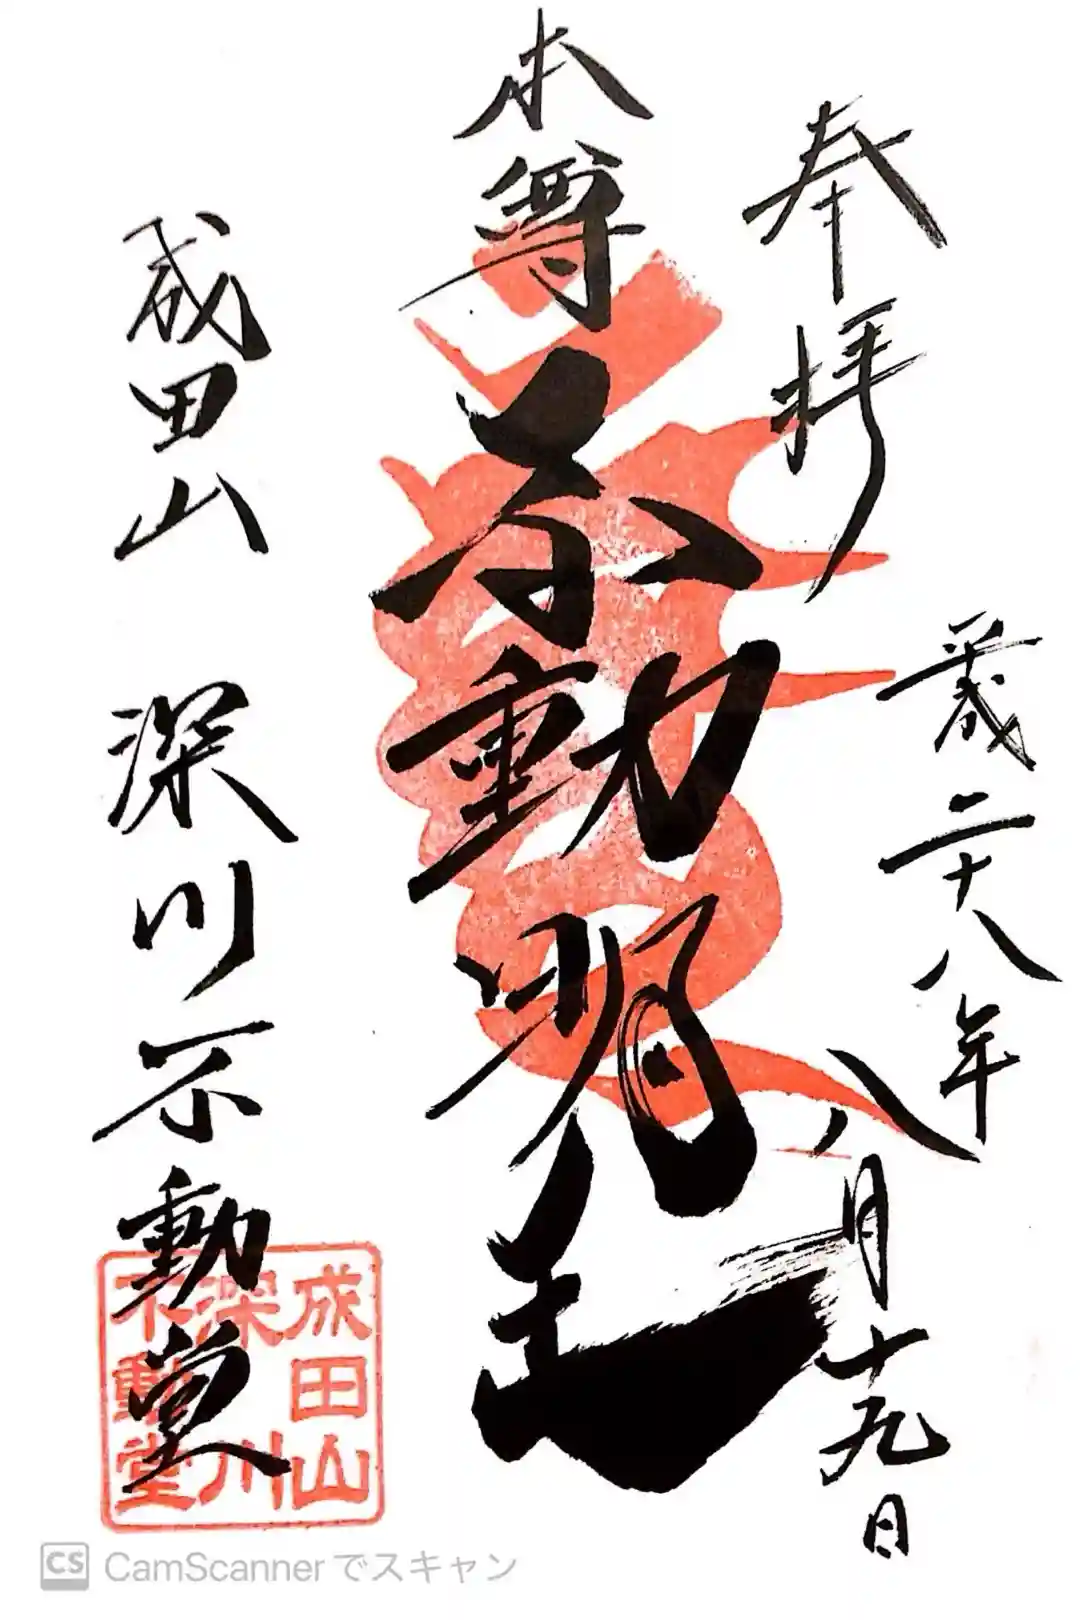 奉拝
平成二十八年
八月十九日
本尊
不動明王
成田山 深川不動堂
成田山
深川
不動堂
CS CamScannerでスキャン